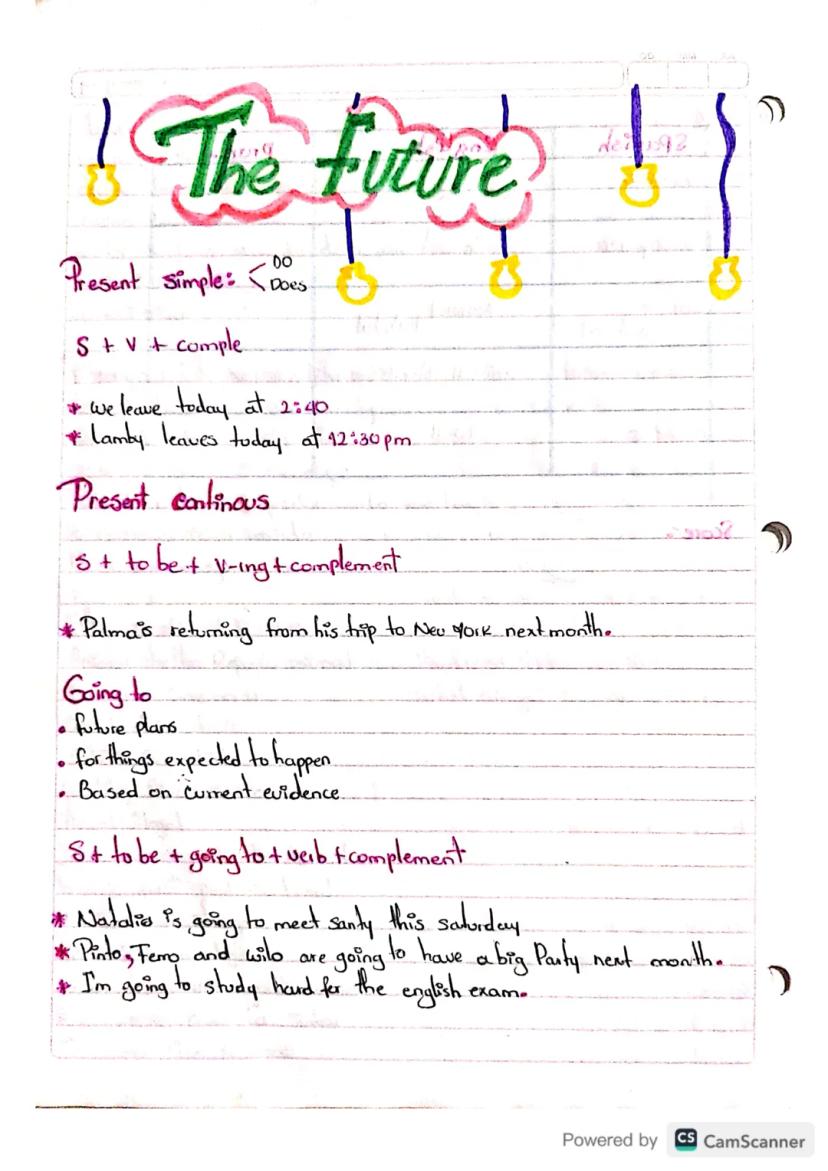 The Future
Present simple: < DO
Does
S + V + comple
* we leave today at 2:40
* lamby leaves today at 12:30 pm
Present continous
S + to be + v-ing + complement
* Palma is returning from his trip to New York next month.
Going to
. future plans
. for things expected to happen
. Based on current evidence
S + to be + going to + verb + complement
* Natalia is going to meet santy this saturday
* Pinto, Femo and wilo are going to have a big Party next month.
* I'm going to study hard for the english exam.
Powered by CS CamScanner